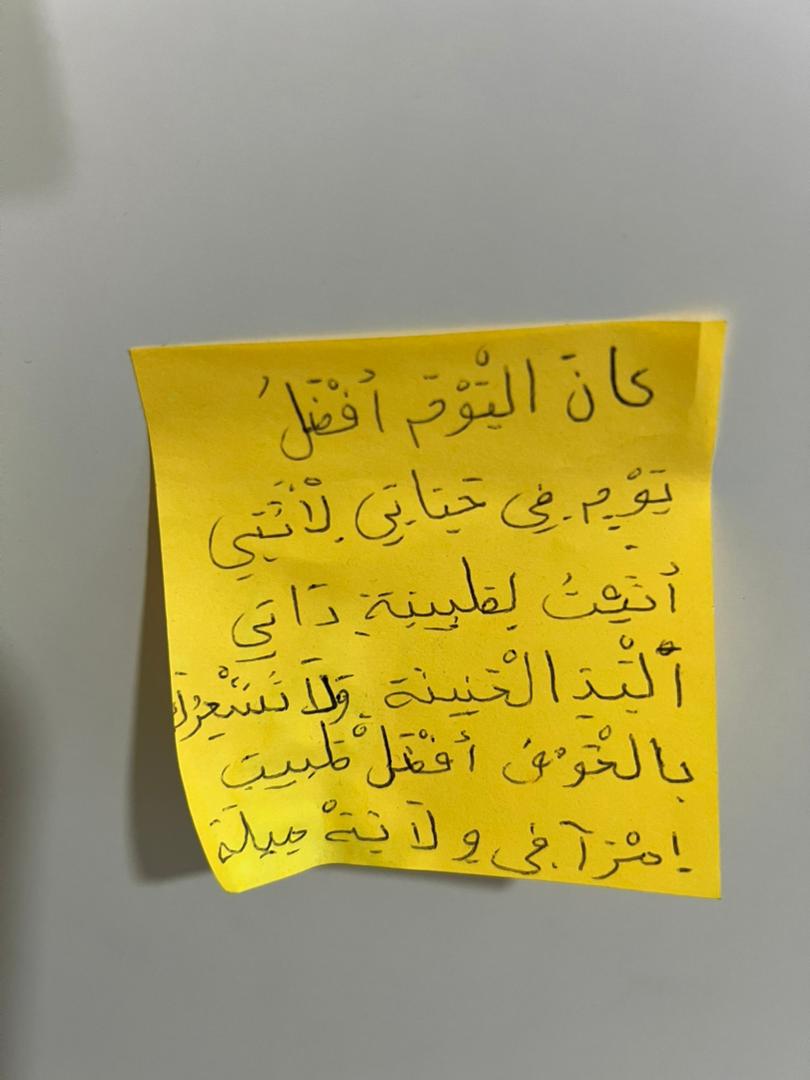 كانَ الْيَوْمَ أَفْضَلُ
يَوْمٍ فِي حَيَاتِي لِأَنَّنِي
أَتَيْتُ لِطَبِيبَةِ ذَاتِي
أَلْيَدِ الْحَنِينَة وَلَا تَشْعِرُكَ
بالْخَوْف أَفْضَل طَبِيبَة
إِمْرَأَة فِي وِلَايَةْ مِيلَةَ